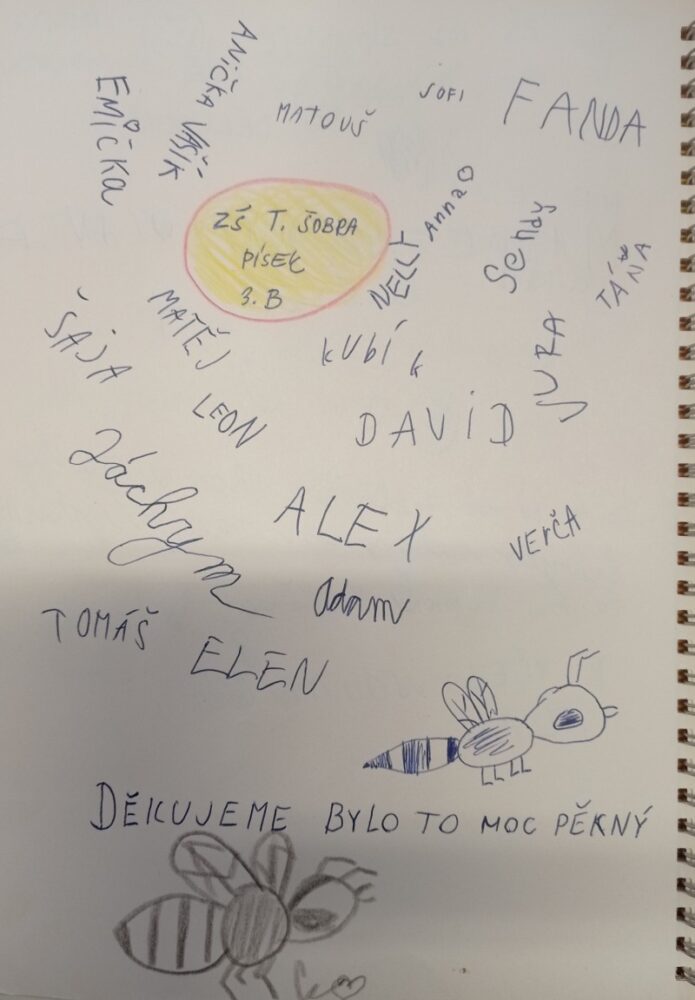 ANIČKA
EMIČKA
VAŠÍK
MATOUŠ
SOFI
FANDA
Anna
Sendy
TÁŇA
NELLY
ZŠ T. ŠOBRA
PÍSEK
3. B
MATĚJ
ŠÁJA
KUBÍK
JURA
LEON
DAVID
Záchrym
ALEX
VErČA
Adam
TOMÁŠ
ELEN
DĚKUJEME BYLO TO MOC PĚKNÝ